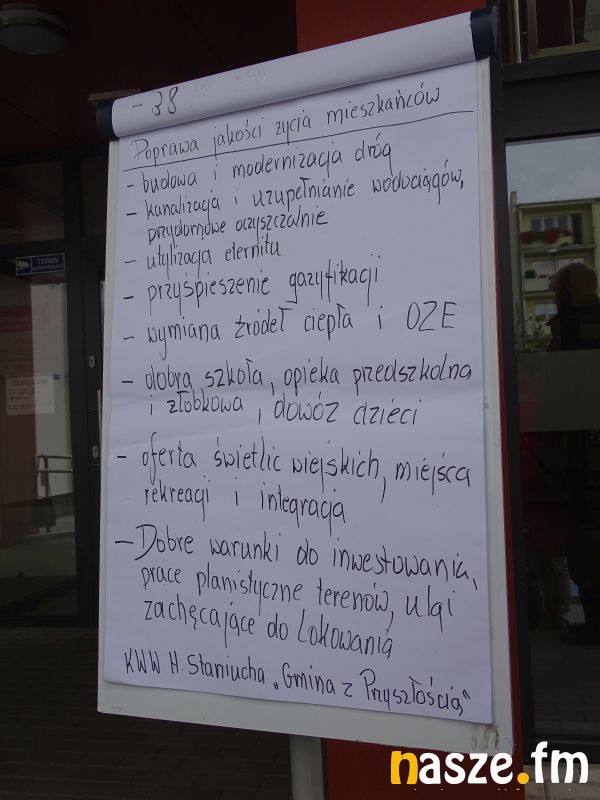 - 38
Poprawa jakości życia mieszkańców
- budowa i modernizacja dróg
- kanalizacja i uzupełnianie wodociągów,
przydomowe oczyszczalnie
- utylizacja eternitu
- przyśpieszenie gazyfikacji
- wymiana źródeł ciepła i OZE
- dobra szkoła, opieka przedszkolna
i żłobkowa, dowóz dzieci
- oferta świetlic wiejskich, miejsca
rekreacji i integracja
- Dobre warunki do inwestowania,
prace planistyczne terenów, ulgi
zachęcające do lokowania
KWW H. Staniucha "Gmina z Przyszłością"
TEREN
nasze.fm